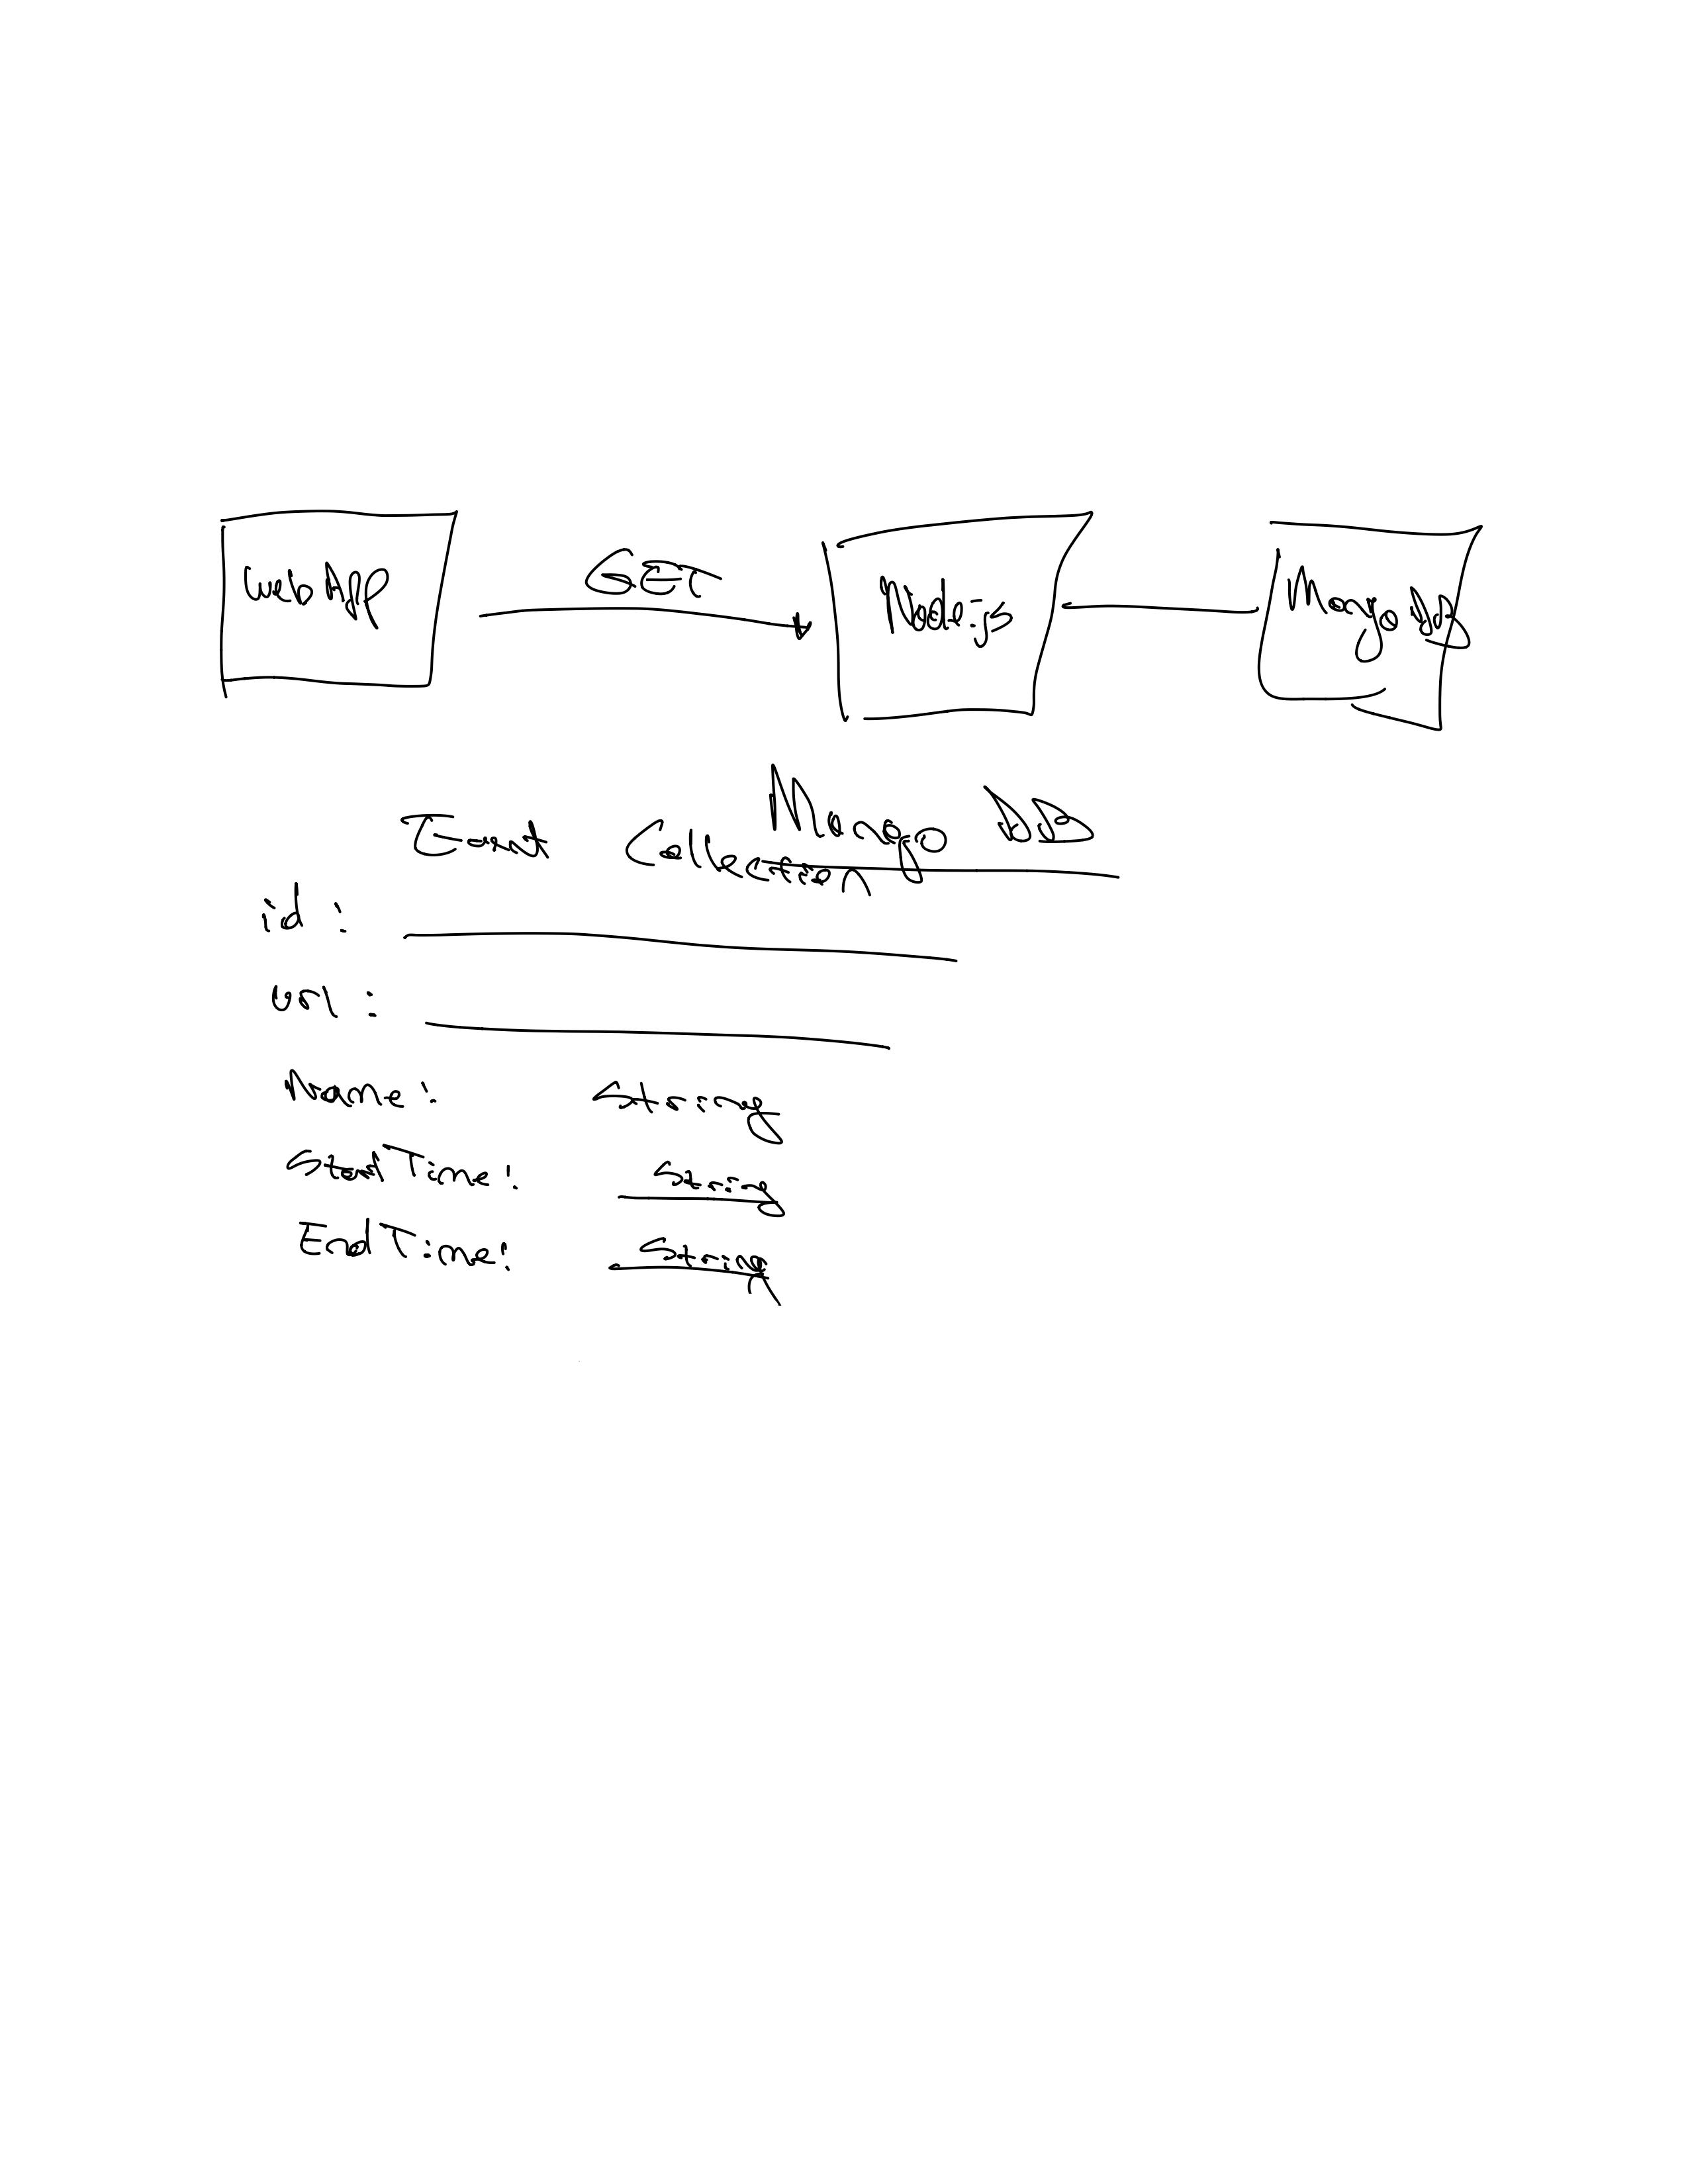 Web App
GET
Node.js
Mongo DB
Mongo DB
Event Collection
id:
url:
Name: String
StartTime: String
EndTime: String